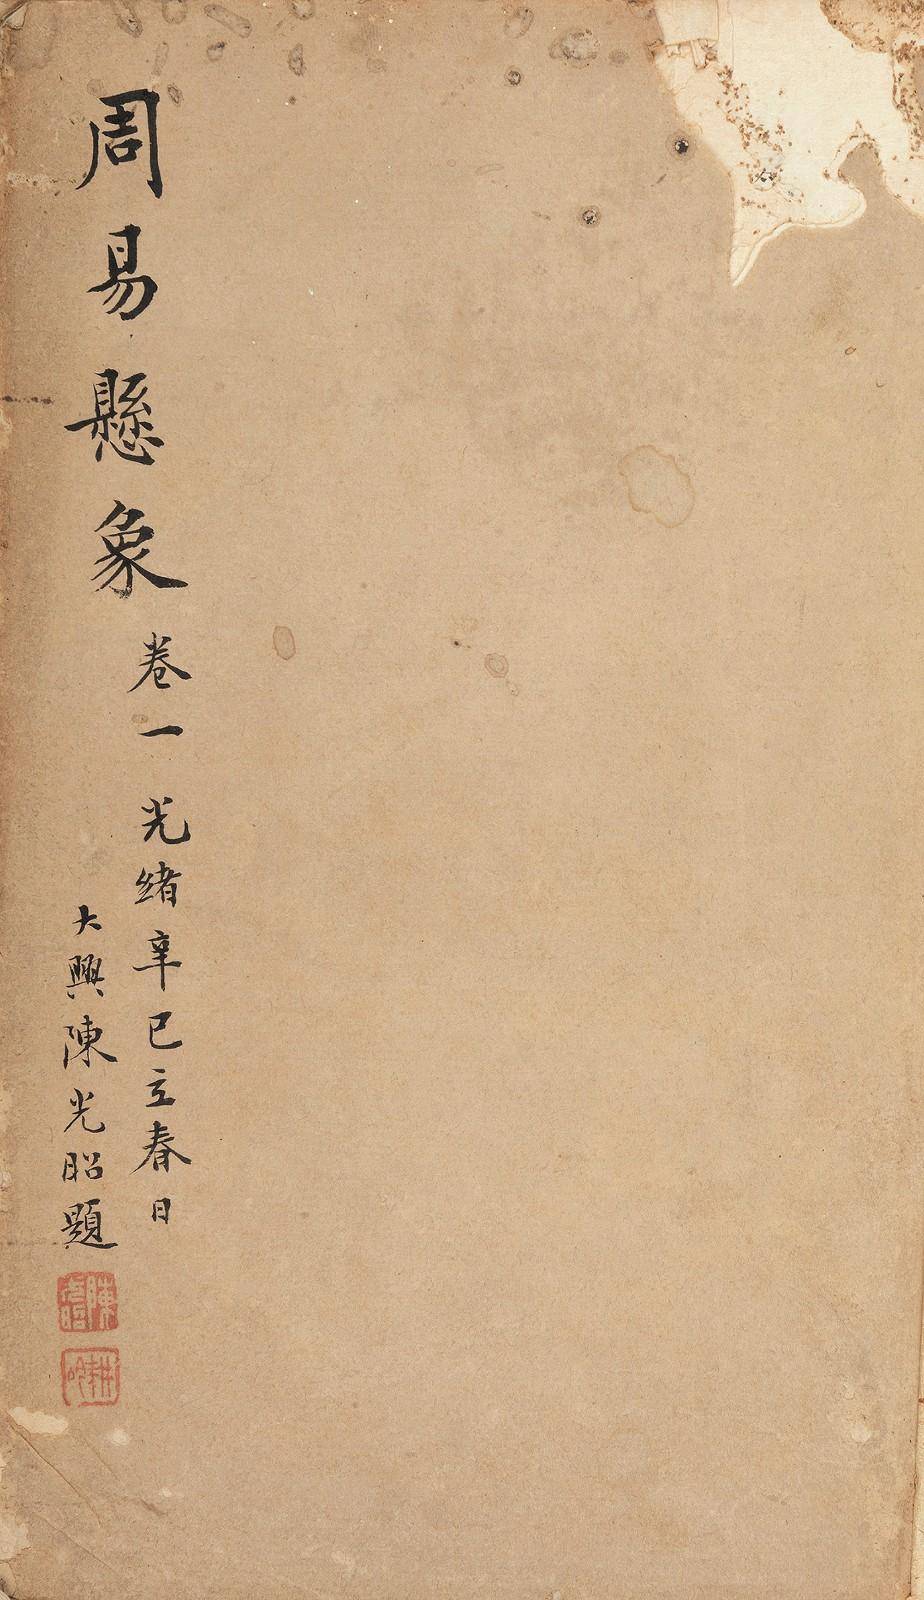 周易懸象
卷一 光緒辛巳立春日
大興陳光昭題
陳光昭